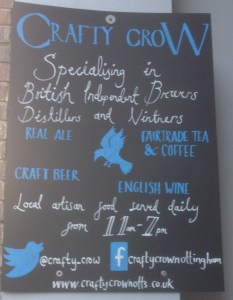 CRAFTY CROW
Specialising in
British Independent Brewers
Distillers and Vintners
REAL ALE
FAIRTRADE TEA
& COFFEE
CRAFT BEER
ENGLISH WINE
Local artisan food served daily
from 11am-7pm
@crafty_crow
f craftycrownottingham
www.craftycrownotts.co.uk